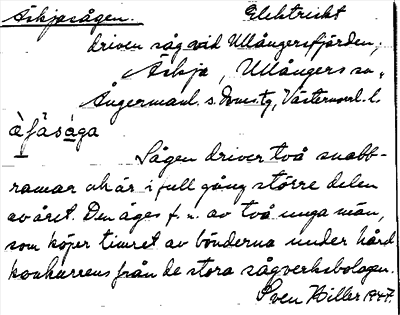 Askjasågen. Elektriskt
driven såg vid Ullångersfjärden,
Askja, Ullångers sn,
Ångermanl. s. domsg, Västernorrl. l.
àfåsàga
Sågen driver två snabb-
ramar och är i full gång större delen
av året. Den äges f. n. av två unga män,
som köper timret av bönderna under hård
konkurrens från de stora sågverksbolagen.
Sven Hiller 1947.